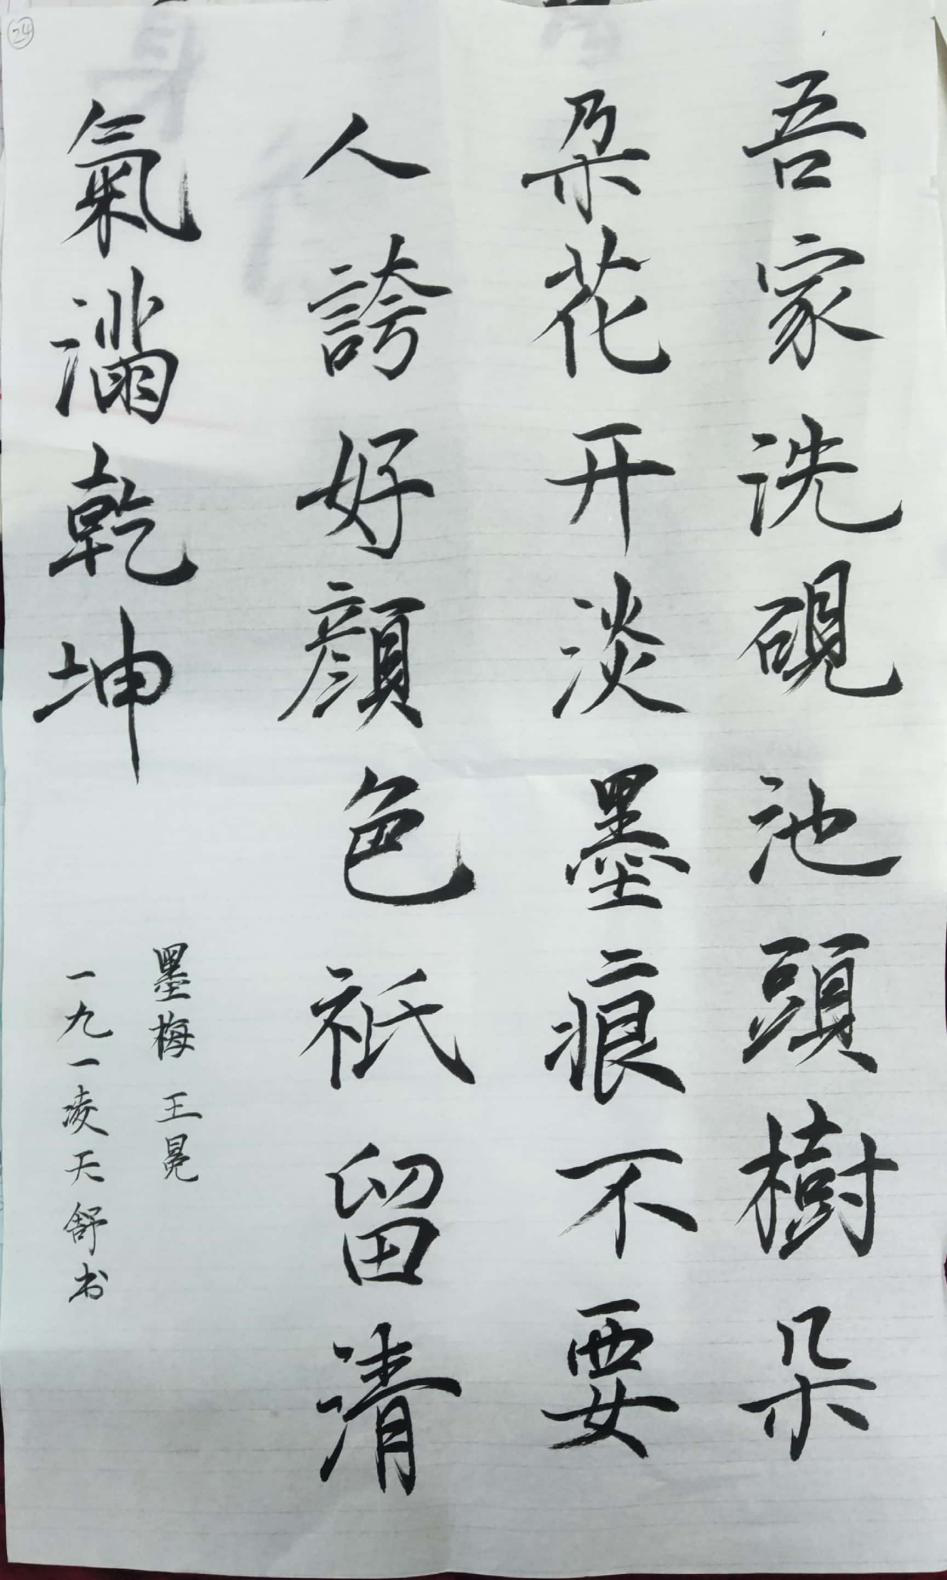 吾家洗硯池頭樹朵
朶花开淡墨痕不要
人誇好顔色祇留清
氣滿乾坤
墨梅王冕
一九一凌天舒书
24